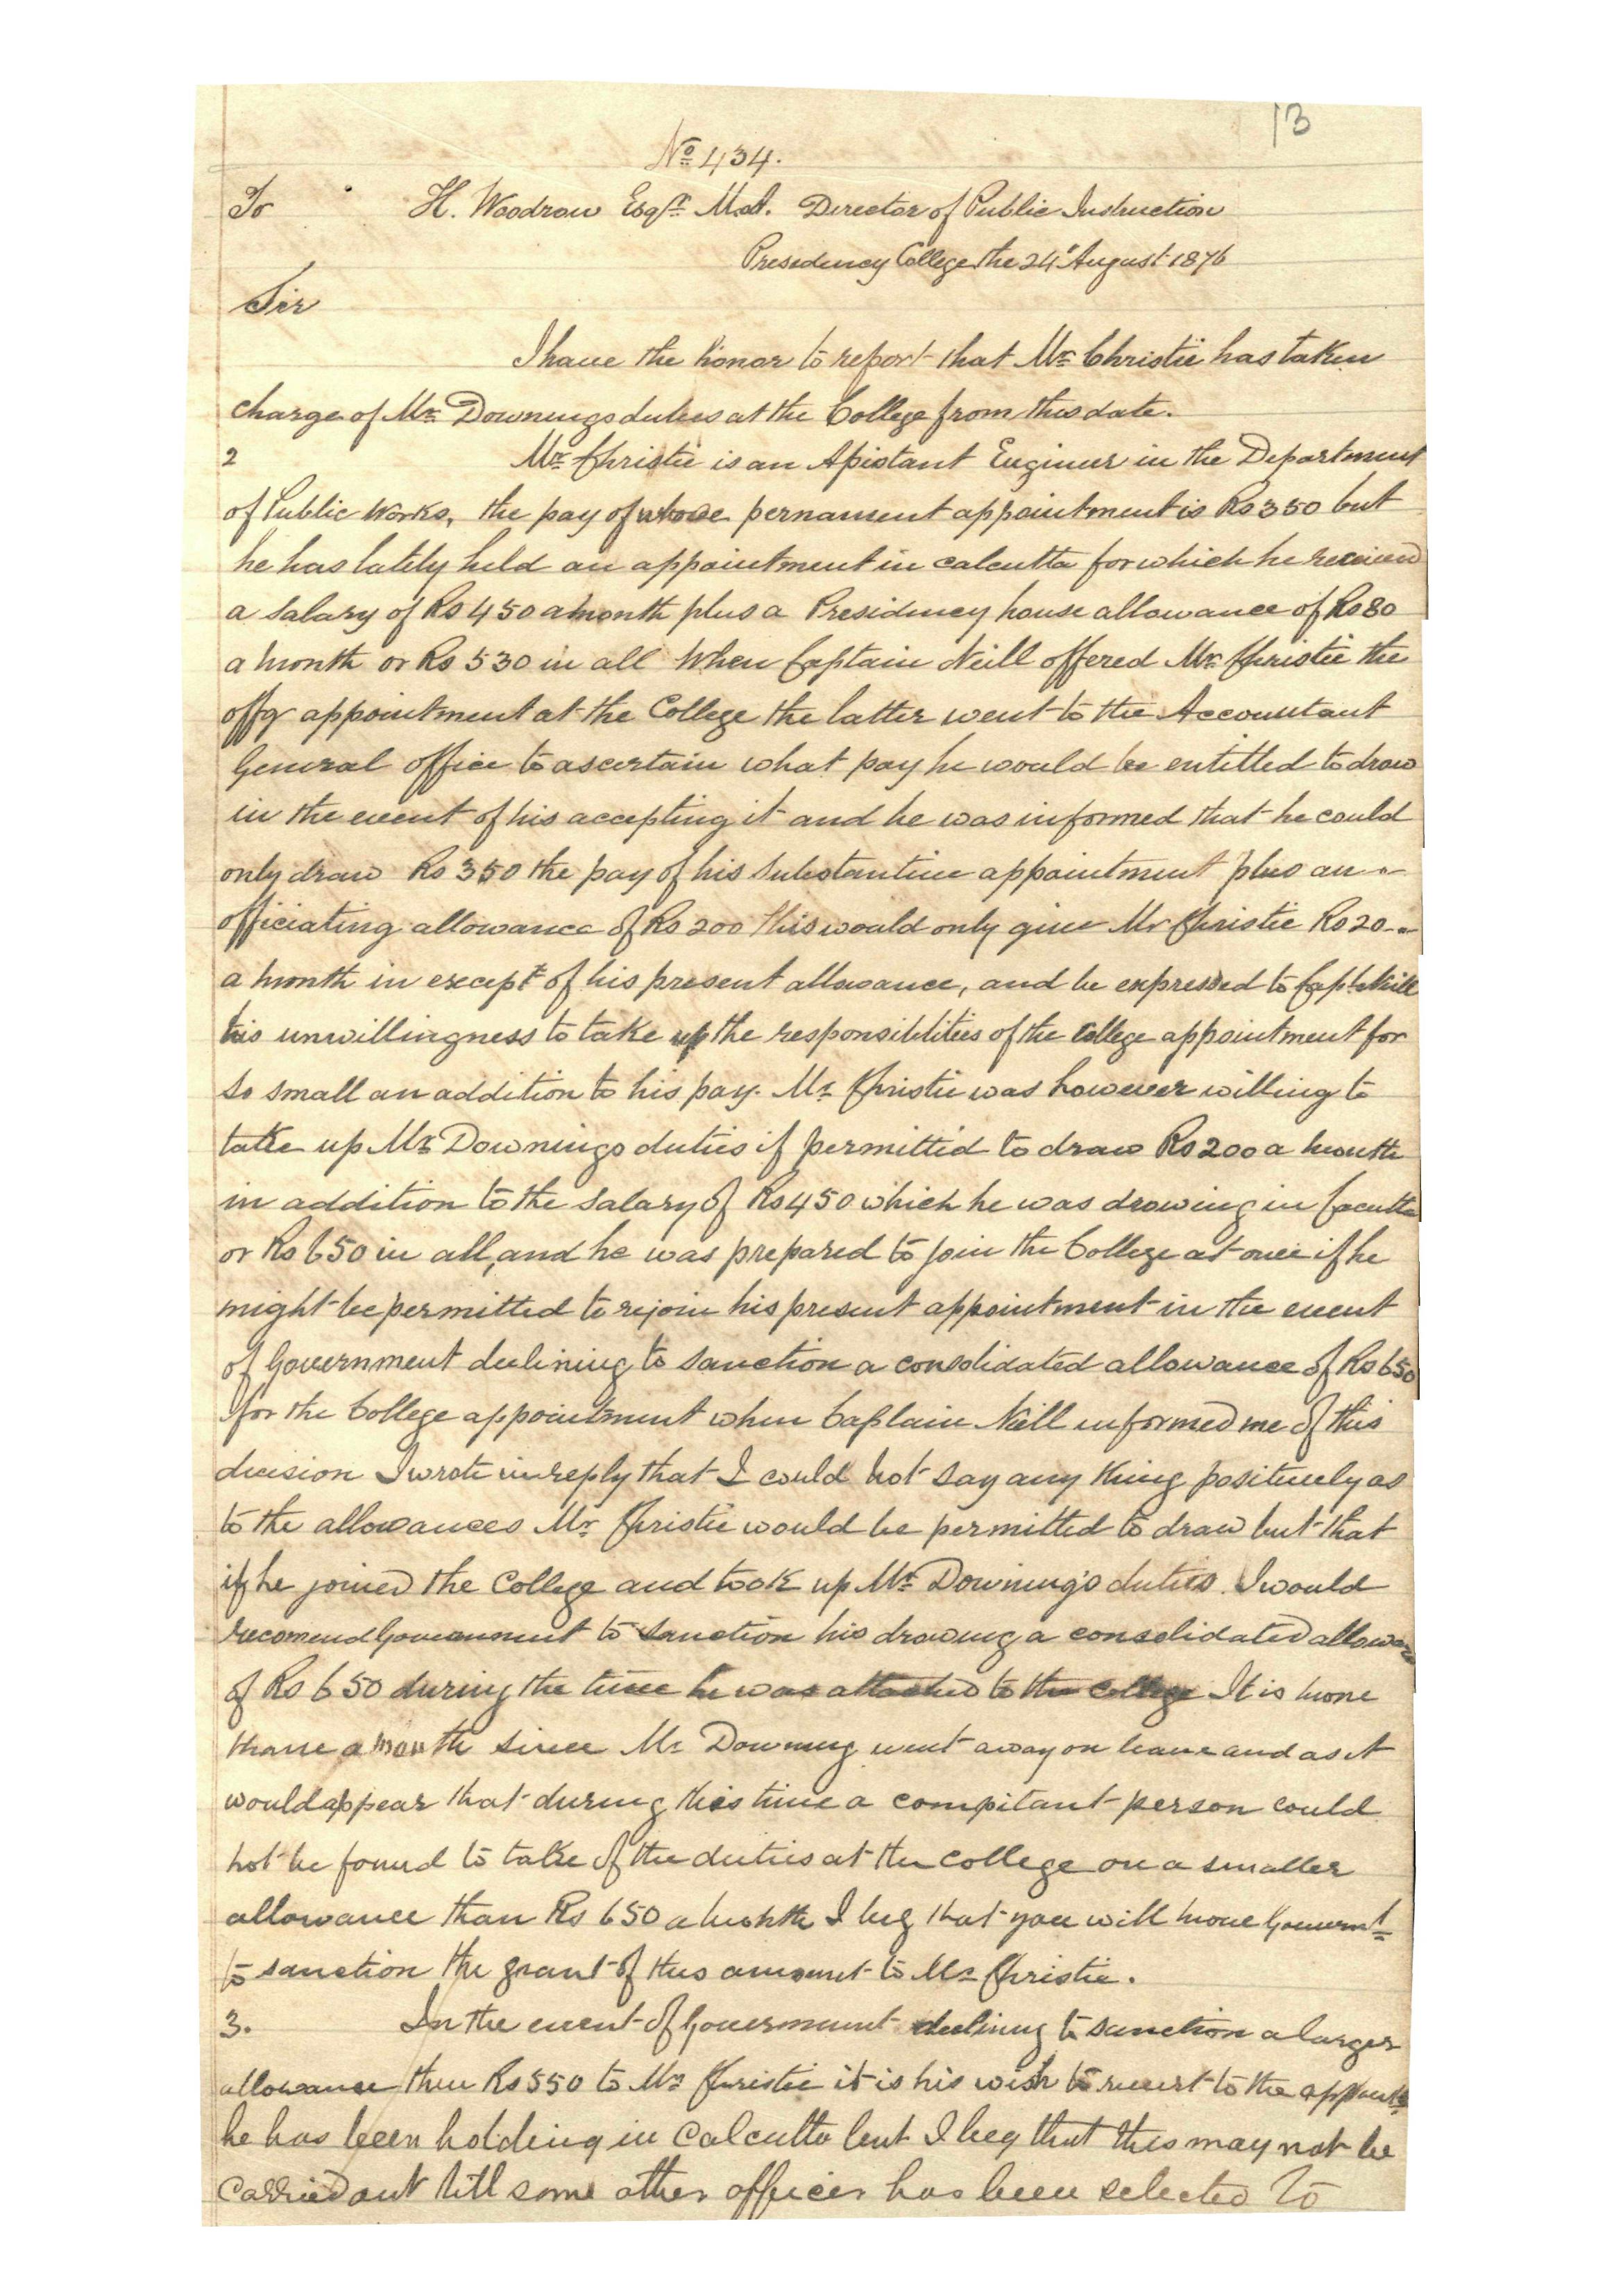 13
No 434.
To H. Woodrow Esqr. M.A. Director of Public Instruction
Presidency College the 24th August 1876
Sir
I have the honor to report that Mr Christie has taken
charge of Mr Downings duties at the College from this date.
2 Mr Christie is an Assistant Engineer in the Department
of Public Works, the pay of whose pernament appointment is Rs 350 but
he has lately held an appointment in calcutta for which he received
a salary of Rs 450 a month plus a Presidency house allowance of Rs 80
a month or Rs 530 in all When Captain Neill offered Mr Christie the
offg appointment at the College the latter went to the Accountant
General office to ascertain what pay he would be entitled to draw
in the event of his accepting it and he was informed that he could
only draw Rs 350 the pay of his substantive appointment plus an
officiating allowance of Rs 200 this would only give Mr Christie Rs 20
a month in excess of his present allowance, and he expressed to Capt. Neill
his unwillingness to take up the responsiblities of the College appointment for
so small an addition to his pay. Mr Christie was however willing to
take up Mr Downings duties if permitted to draw Rs 200 a month
in addition to the salary of Rs 450 which he was drawing in
or Rs 650 in all, and he was prepared to join the College at once if he
might be permitted to rejoin his present appointment in the event
of Government declining to sanction a consolidated allowance of Rs 650
for the College appointment when Captain Neill informed me of this
decision I wrote in reply that I could not say any thing positively as
to the allowances Mr Christie would be permitted to draw but that
if he joined the College and took up Mr Downing's duties. I would
recomend Government to sanction his drawing a consolidated
of Rs 650 during the time he was attached to the College It is more
than a month since Mr Downing went away on leave and as it
would appear that during this time a compitant person could
not be found to take of the duties at the college on a smaller
allowance than Rs 650 a month I beg that you will move Governmt
to sanction the grant of this amount to Mr Christie.
3. In the event of Government declining to sanction a larger
allowance then Rs 550 to Mr Christie it is his wish to revert to the
he has been holding in Calcutta but I beg that this may not be
carried out till some other officer has been selected to